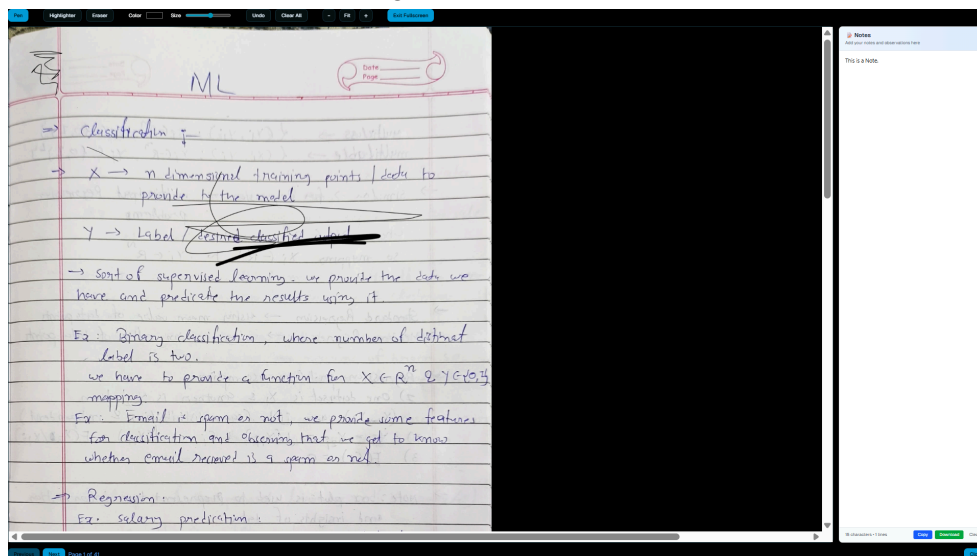 Pen Highlighter Eraser Color Size Undo Clear All - Fit + Exit Fullscreen
Notes
Add your notes and observations here
This is a Note.
Date
Page
ML
⇒ Classification :-
→ X → n dimensional training points / data to
provide to the model
Y → Label / desired classified output
→ Sort of supervised learning. we provide the data we
have and predicate the results using it.
Ex: Binary classification, where number of distinct
label is two.
we have to provide a function for X ∈ R^n & Y ∈ {0,1}
mapping.
Ex: Email is spam or not, we provide some features
for classification and observing that we get to know
whether email recieved is a spam or not.
⇒ Regression:
Ex. salary predication:
18 characters • 1 lines Copy Download
Previous Next Page 1 of 41